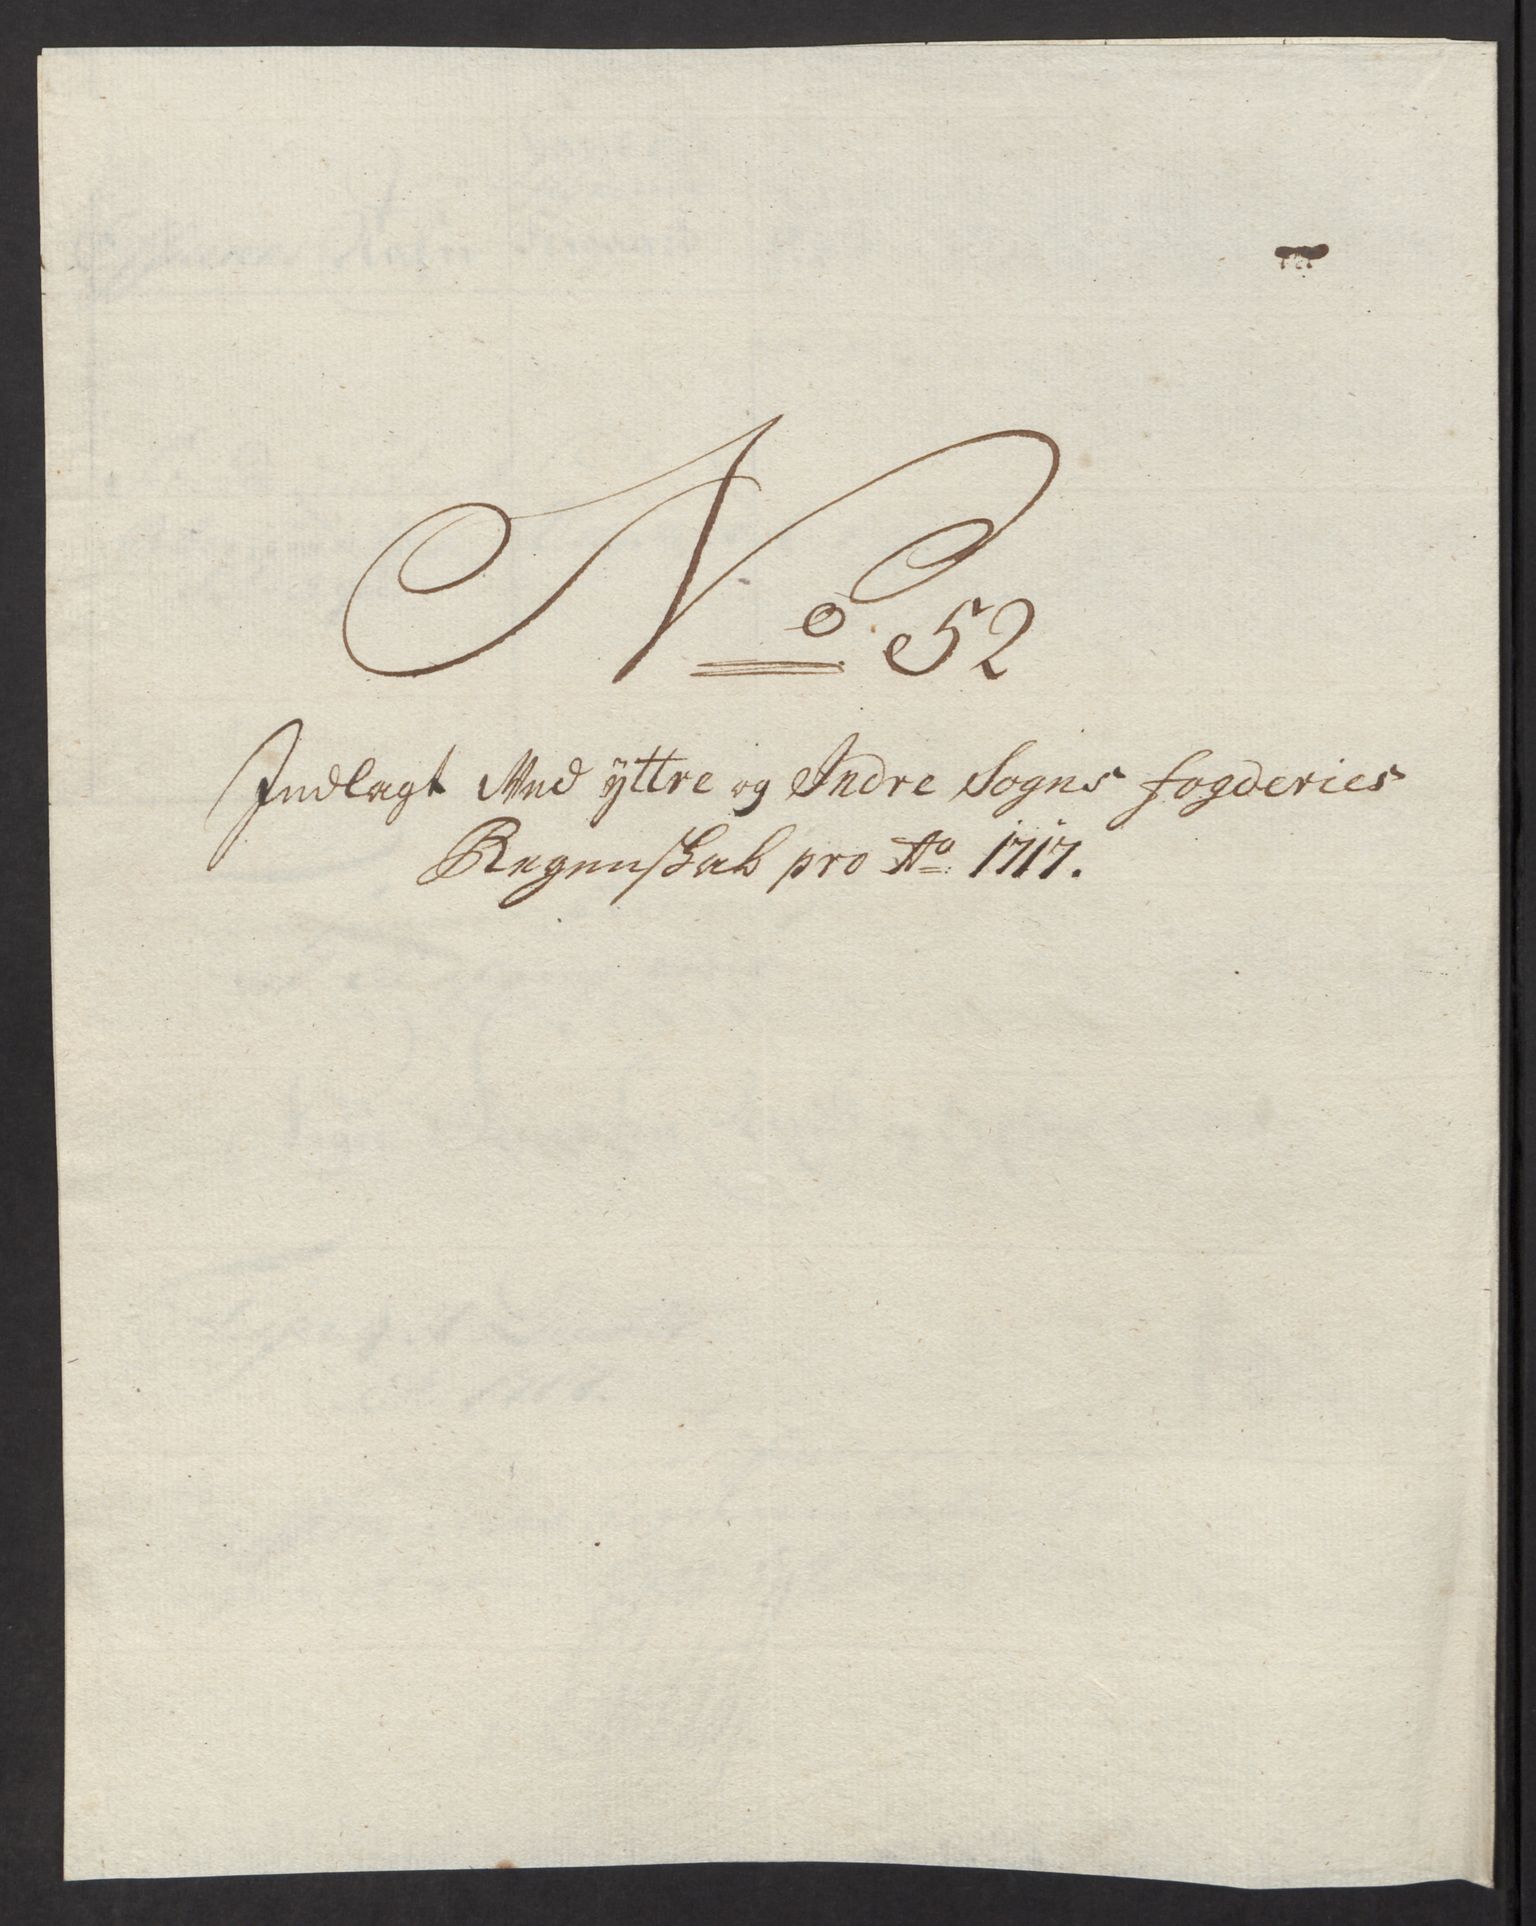 No 52
Indlagt Med yttre og Indre Sogns fogderies
Regenskab pro Ao 1717.